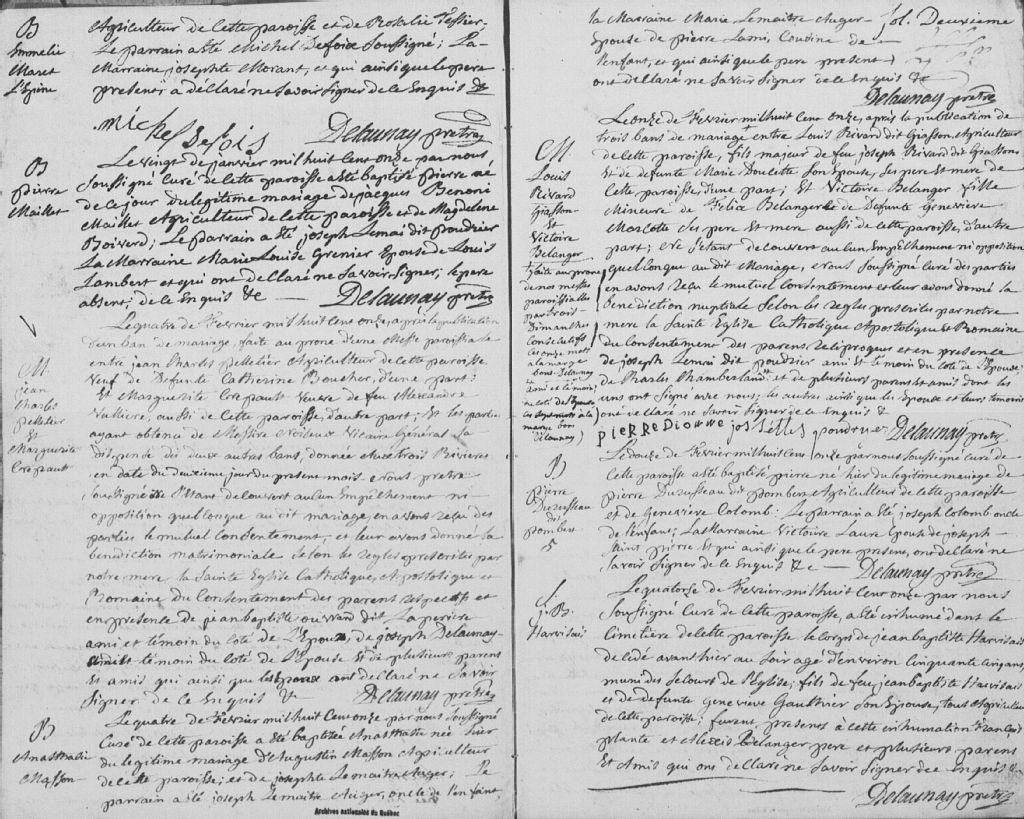 B
Emmelie
Maret
L'Epine
Agriculteur de cette paroisse et de Rosalie Tessier.
Le parrain a été Michel Defois Soussigné; La
Marraine, josephte Morant, et qui ainsi que le pere
present, a déclaré ne savoir signer de ce Enquis &c
michel defois Delaunay prêtre
B
pierre
Maillet
Le vingt de janvier mil huit cent onze par nous
Soussigné curé de cette paroisse a été baptisé pierre né
de ce jour du legitime mariage de jacques Benoni
Maillet Agriculteur de cette paroisse et de Magdelene
Boisverd; Le parrain a été joseph Lemai dit poudrier
La Marraine Marie Louise Grenier Epouse de Louis
Lambert et qui ont declaré ne savoir signer; le pere
absent; de ce Enquis &c Delaunay prêtre
M.
jean
Charles
pelletier
Et
Marguerite
Crepault
Le quatre de Fevrier mil huit cent onze, après la publication
d'un ban de mariage, faite au prone d'une Messe paroissiale
entre jean Charles pelletier Agriculteur de cette paroisse
Veuf de Defunte Catherine Boucher, d'une part;
Et Marguerite Crepault Veuve de feu Alexandre
Valliere, aussi de cette paroisse, d'autre part; Et les parties
ayant obtenu de Messire Noiseux Vicaire Général la
dispense de deux autres bans, donnée aux trois Rivieres
en date du deuxieme jour du present mois & nous pretre
Soussigné ne s'etant decouvert aucun Empêchement ni
opposition quelconque au dit mariage, en avons reçu des
parties le mutuel Consentement, et leur avons donné la
benediction matrimoniale selon les regles prescrites par
notre mere la Sainte Eglise Catholique, Apostolique et
Romaine du Consentement des parens respectifs et
en presence de jean baptiste dit La perriere
ami et témoin du coté de L'Epoux, de joseph Delaunay
ami et témoin du coté de L'Epouse Et de plusieurs parens
Et amis qui ainsi que les Epoux ont declaré ne savoir
signer de ce Enquis &c Delaunay prêtre
B
Anasthalie
Masson
Le quatre de Fevrier mil huit cent onze par nous Soussigné
Curé de cette paroisse a été baptisée Anasthalie née hier
du legitime mariage d'Augustin Masson Agriculteur
de cette paroisse; et de josephte Lemaitre Auger; Le
parrain a été joseph Lemaitre Auger, oncle de l'enfant,
Archives nationales du Québec
fol. Deuxieme
la Marraine Marie Lemaitre Auger
Epouse de pierre Lami, Cousine de
l'enfant, et qui ainsi que le pere present
ont declaré ne savoir signer de ce Enquis &c
Delaunay prêtre
M.
Louis
Rivard
Giasson
Et
Victoire
Belanger
Le onze de Fevrier mil huit cent onze, après la publication de
trois bans de mariage entre Louis Rivard dit Giasson, Agriculteur
de cette paroisse, fils majeur de feu joseph Rivard dit Giasson
Et de defunte Marie Doucette Son Epouse, ses pere et mere de
cette paroisse, d'une part; Et Victoire Belanger fille
Mineure de Felix Belanger & de Defunte Genevieve
Mascotte ses pere et mere aussi de cette paroisse, d'autre
part; & ne s'étant decouvert aucun Empêchement ni opposition
quelconque au dit Mariage, & nous Soussigné Curé des parties
en avons reçu le mutuel Consentement et leur avons donné la
benediction nuptiale selon les regles prescrites par notre
mere la Sainte Eglise Catholique Apostolique & Romaine
du Consentement des parens réciproques et en presence
de joseph Lemai dit poudrier ami et témoin du coté de l'Epouse;
de Charles Chamberland et de plusieurs parens et amis dont les
uns ont signé avec nous; les autres ainsi que les Epoux et leurs temoins
ont declaré ne savoir signer de ce Enquis &
faite au prone
de nos messes
paroissialles
par trois
Dimanches
Consecutifs
ces onze mots
à la marge
bons. Delaunay
ami et témoin
du coté de l'Epoux
ces sept mots à la
marge bon
Delaunay
PIERRE Dionne jos poudrier Delaunay prêtre
B
pierre
Durusseau
dit
pombert
5
Le douze de Fevrier mil huit cent onze par nous Soussigné curé de
cette paroisse a été baptisé pierre né hier du legitime mariage de
pierre Durusseau dit pombert Agriculteur de cette paroisse
et de Genevieve Colomb: Le parrain a été joseph Colomb oncle
de l'enfant, La Marraine Victoire Epouse de joseph
Saint pierre et qui ainsi que le pere present, ont declaré ne
savoir signer de ce Enquis &c Delaunay prêtre
J. B.
Harvisais
Le quatorze de Fevrier mil huit cent onze par nous
Soussigné Curé de cette paroisse, a été inhumé dans le
Cimetière de cette paroisse le corps de jean baptiste Harvisais
decedé avant hier au soir agé d'environ cinquante cinq ans,
muni des secours de l'Eglise; fils de feu jean baptiste Harvisais
et de defunte Genevieve Gaulthier son Epouse, tous Agriculteurs
de cette paroisse; furent presens à cette inhumation François
plante et Alexis Belanger pere et plusieurs parens
Et Amis qui ont declaré ne savoir signer de ce Enquis &c
Delaunay prêtre